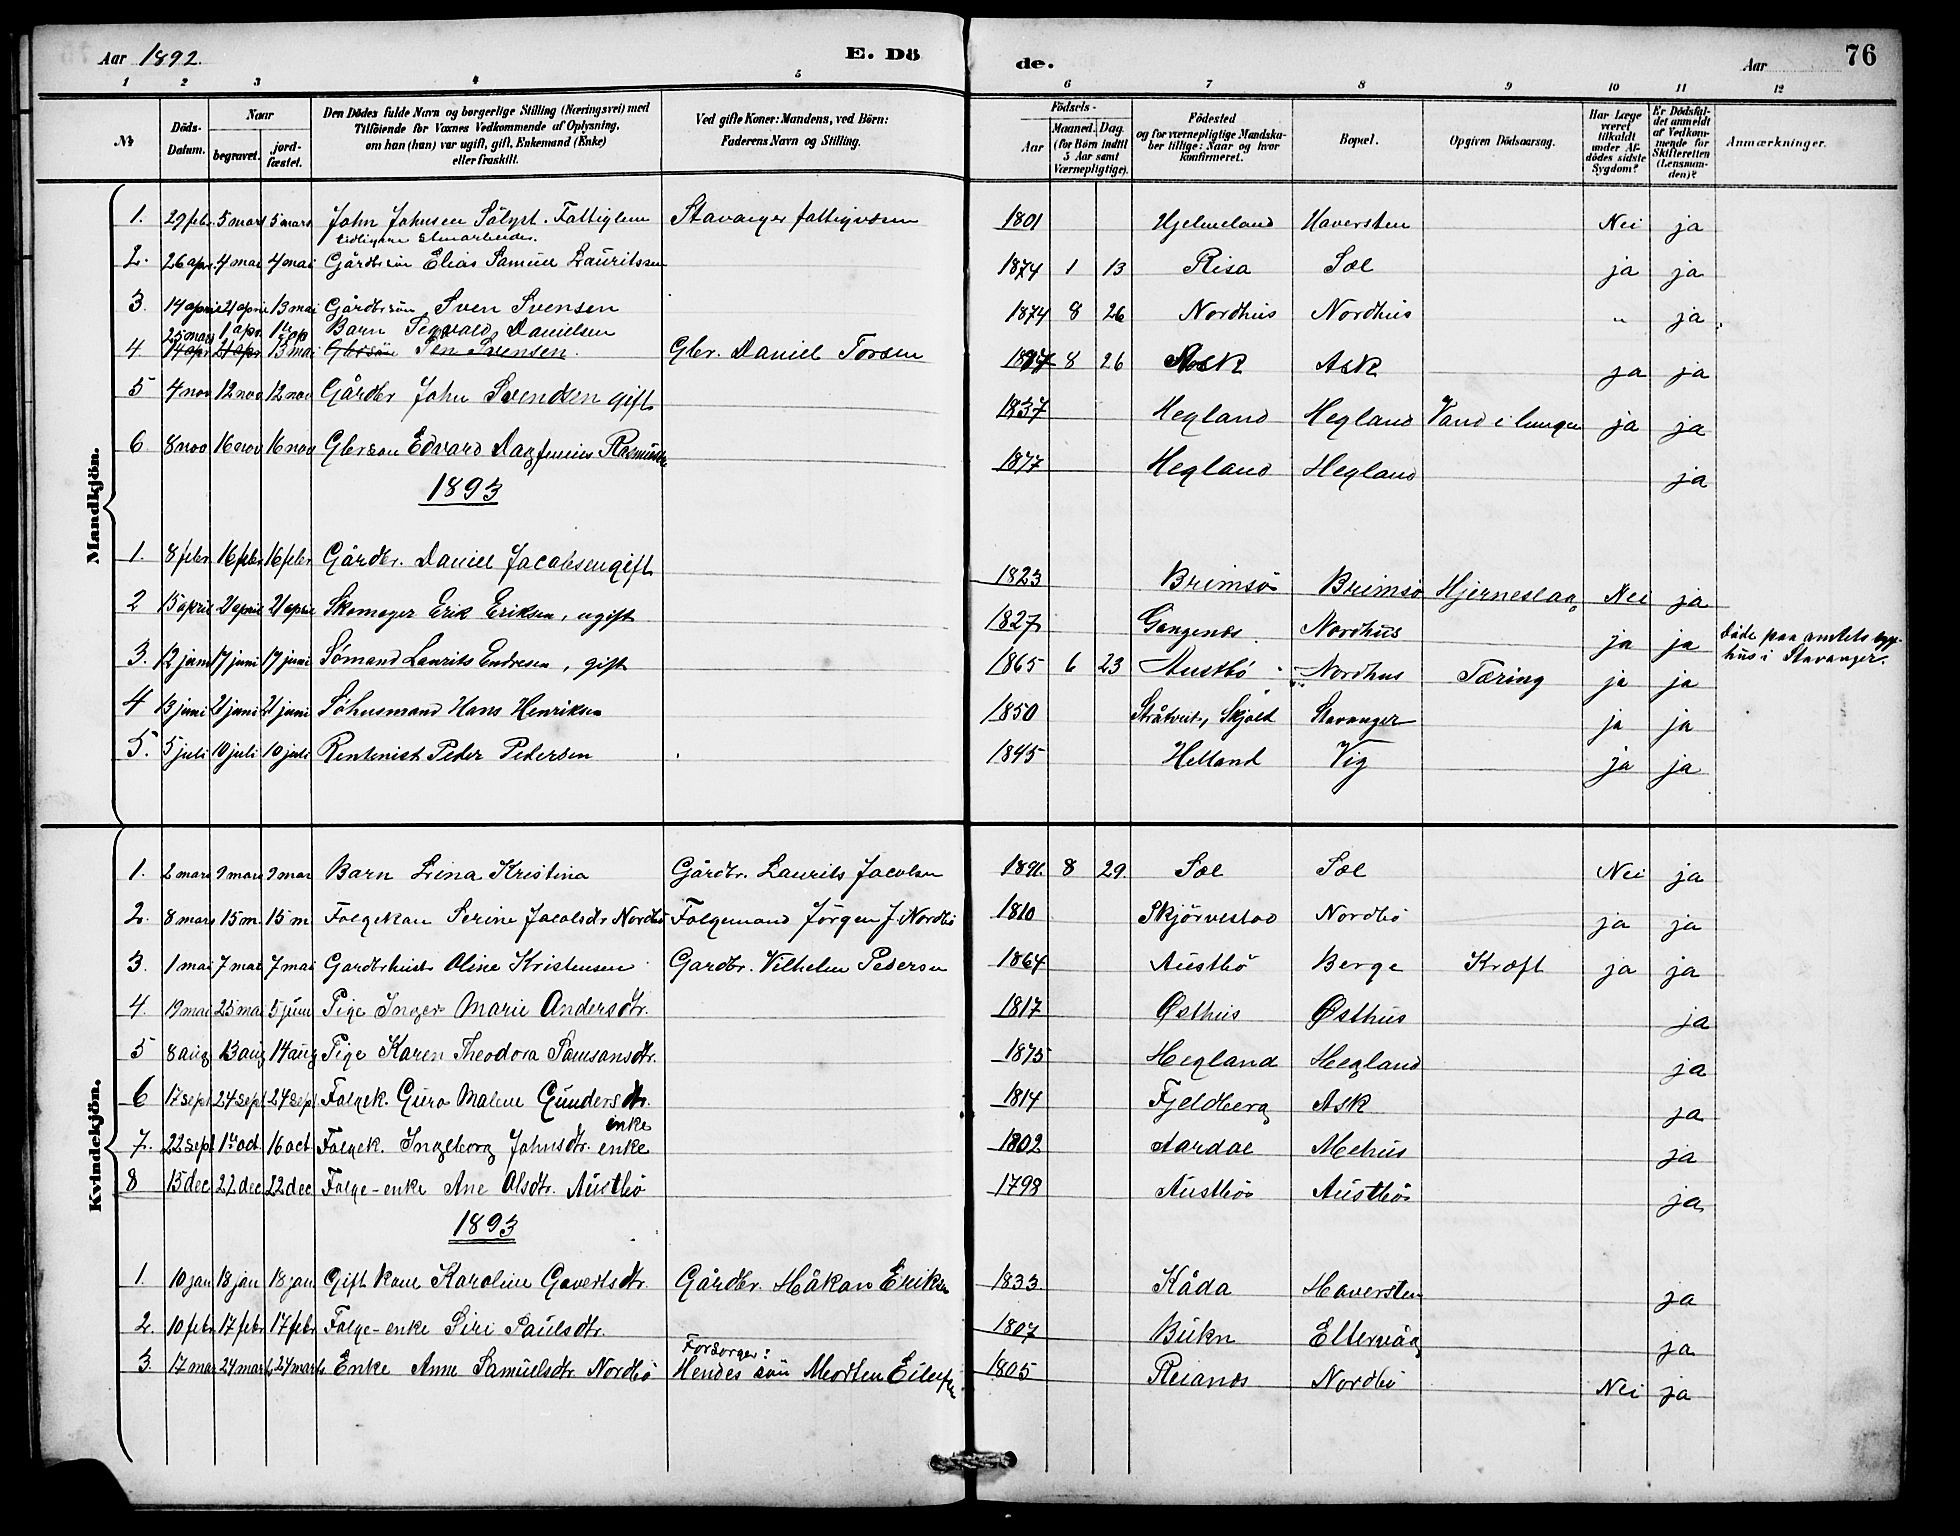 Aar 1892. E. Dö de. Aar 76
1 2 3 4 5 6 7 8 9 10 11 12
№ Döds-Datum. Naar begravet. jord-fæstet. Den Dödes fulde Navn og borgerlige Stilling (Næringsvei) med Tilföiende for Voxnes Vedkommende af Oplysning, om han (hun) var ugift, gift, Enkemand (Enke) eller fraskilt. Ved gifte Koner: Mandens, ved Börn: Faderens Navn og Stilling. Födsels- Aar Maaned. Dag. (for Börn indtil 5 Aar samt Værnepligtige). Födested og for værnepligtige Mandskaber tillige: Naar og hvor konfirmeret. Bopæl. Opgiven Dödsaarsag. Har Læge været tilkaldt under Afdödes sidste Sygdom? Er Dödsfaldet anmeldt af Vedkommende for Skifteretten (Lensmanden)? Anmærkninger.
Mandkjön.
1. 29 febr 5 mars 5 mars John Johnsen Sölyst. Fattiglem Stavanger fattigvæsen 1801 Hjelmeland Haversten Nei ja
tidligere stenarbeider.
2. 26 apr 4 mai 4 mai Gårdbrsön Elias Samuel Lauritssen 1874 1 13 Risa Sæl ja ja
3. 14 april 21 april 13 mai Gårdbrsön Sven Svensen 1874 8 26 Nordhus Nordhus " ja
25 mars 1 apr Barn Sigvald Danielsen
4. 14 apr 21 apr 13 mai Gbrsön Sven Svensen. Gbr. Daniel Torsen 8 26 Ask Ask ja ja
5 4 nov 12 nov 12 nov Gårdbr John Svendsen gift 1837 Hegland Hegland Vand i lungen ja ja
6 8 nov 16 nov 16 nov Gbrsön Edvard Dagfinius Rasmussen 1877 Hegland Hegland ja
1893
1. 8 febr 16 febr 16 febr Gårdbr. Daniel Jacobsen gift 1823 Brimsö Brimsö Hjerneslag Nei ja
2 15 april 21 april 21 april Skomager Erik Eriksen, ugift 1827 Gangenæs Nordhus ja ja döde paa amtets syge-
hus i Stavanger.
3. 12 juni 17 juni 17 juni Sömand Laurits Endresen, gift 1865 6 23 Austbö Nordhus Tæring ja ja
4 13 juni 21 juni 21 juni Söhusmand Hans Henriksen 1850 Stråtveit, Skjold Stavanger ja ja
5. 5 juli 10 juli 10 juli Rentenist Peder Pedersen 1845 Helland Vig ja ja
Kvindekjön.
1. 2 mars 9 mars 9 mar Barn Lina Kristina Gårdbr. Laurits Jacobsen 1891. 8 29. Sæl Sæl Nei ja
2. 8 mars 15 m. 15 m Folgekon Serine Jacobsdtr Nordbö Folgemand Jörgen J. Nordbö 1810 Skjörvestad Nordbö ja ja
3. 1 mai 7 mai 7 mai Gardbrhustr Oline Kristensen Gardbr. Vilhelm Pedersen 1864 Austbö Berge Kræft ja ja
4. 19 mai 25 mai 5 juni Pige Inger Marie Andersdtr. 1817 Østhus Østhus ja
5 8 aug 13 aug 14 aug Pige Karen Theodora Samsonsdtr. 1875 Hegland Hegland ja
6 17 sept 24 sept 24 sept Folgek. Guro Malene Gundersdtr. enke 1814 Fjeldberg Ask ja
7. 22 sept 1ste oct 16 oct Folgek. Ingeborg Johnsdtr. enke 1802 Aardal Mehus ja
8 15 dec 22 dec 22 dec Folge-enke Ane Olsdtr. Austbö 1798 Austbö Austbö ja
1893
1. 10 jan 18 jan 18 jan Gift kone Karoline Govertsdtr. Gårdbr. Håkon Eriksen 1833. Kåda Haversten ja
2. 10 febr 17 febr 17 febr Folge-enke Siri Paulsdtr. 1807 Bukn Eltervåg ja
Forsorger:
3. 17 mar 24 marts 24 marts Enke Anne Samuelsdtr Nordbö Hendes sön Morten Eilefsen 1805 Reianes Nordbö Nei ja